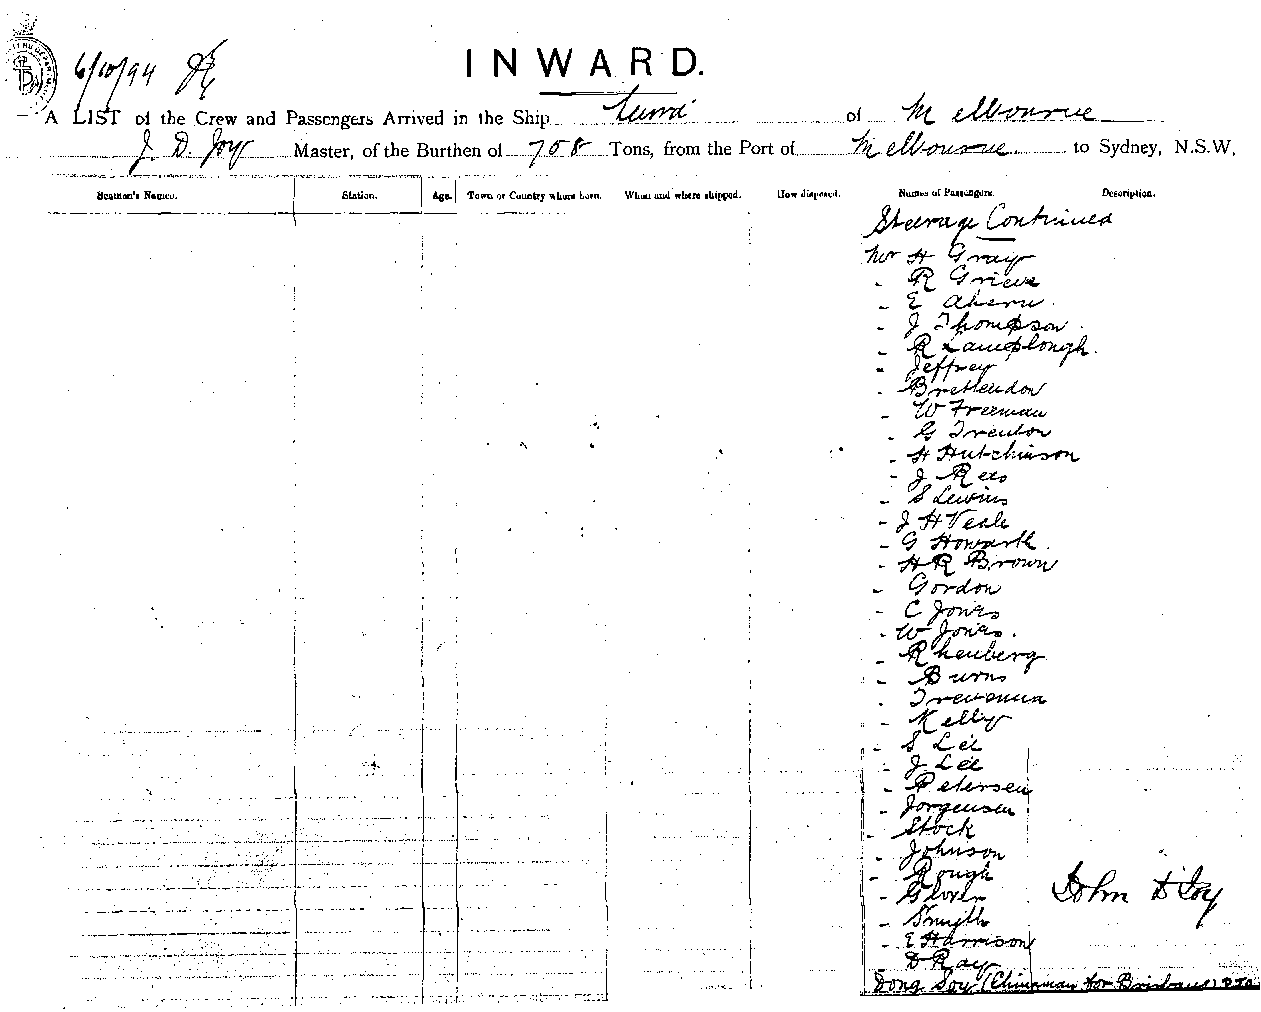 6/10/94
INWARD.
A LIST of the Crew and Passengers Arrived in the Ship of Melbourne
J. D. Joy Master, of the Burthen of 708 Tons, from the Port of Melbourne to Sydney, N.S.W,
Seamen's Names. Station. Age. Town or Country where born. When and where shipped. How disposed. Names of Passengers. Description.
Steerage Continued
Mr H Gray
- R Grieve
- E Ahern
- J Thompson
- R Lamplough
- Jeffrey
- Brettendon
- W Freeman
- G Trenton
- H Hutchinson
- J Rees
- S Lewins
- J H Veale
- G Howarth
- H R Brown
- Gordon
- C Jones
- W Jones
- Rhenberg
- Burns
- Kelly
- S Lee
- J Lee
- Petersen
- Jorgensen
- Stock
- Johnson
- Rough
- Glover
John D Joy
- Smyth
- E Harrison
D Ray
Dong Soy (Chinaman for Brisbane) P.T.O.